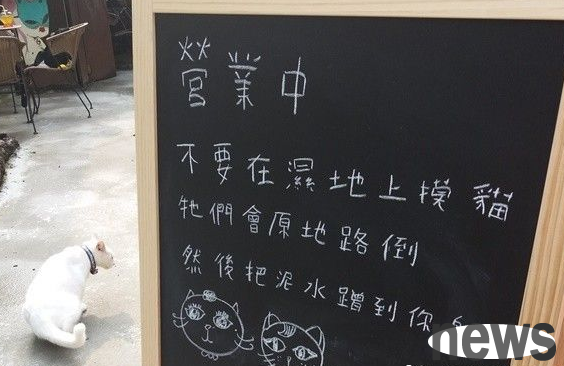 營業中
不要在濕地上摸貓
牠們會原地路倒
然後把泥水蹭到你
news